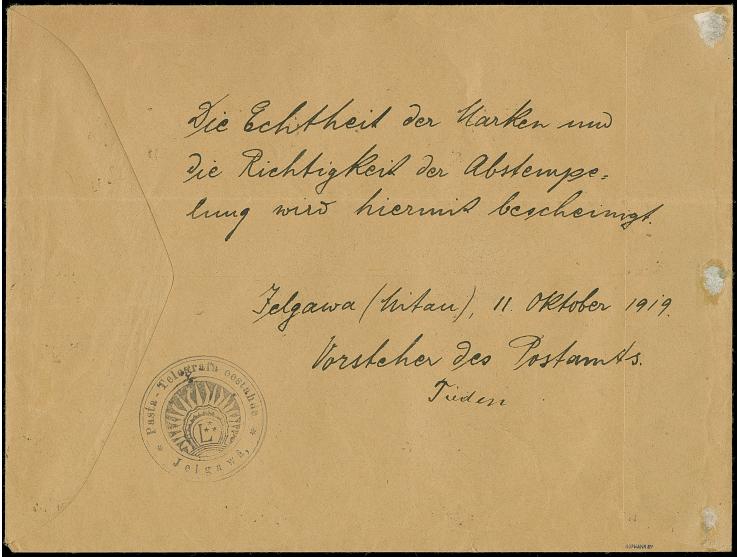 Die Echtheit der Marken und
die Richtigkeit der Abstempe=
lung wird hiermit bescheinigt.
Jelgawa (Mitau), 11. Oktober 1919.
Vorsteher des Postamts.
Tieden
* Pasta-Telegrafa eestahde *
L
Jelgawā,